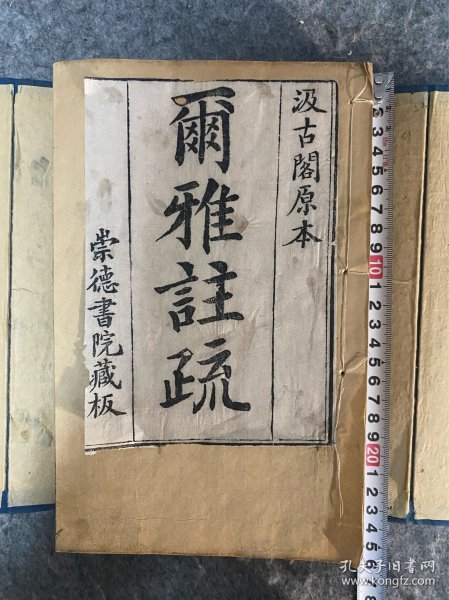 汲古閣原本
爾雅註疏
崇德書院藏板
1
2
3
4
5
6
7
8
9
10
1
2
3
4
5
6
7
8
9
20
1
2
3
4
5
6
7
8
孔夫子旧书网
www.kongfz.com